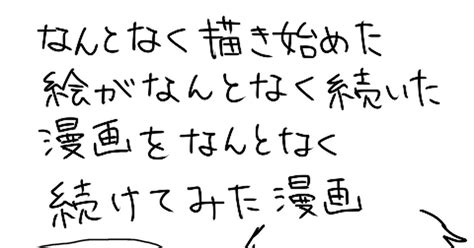 なんとなく描き始めた
絵がなんとなく続いた
漫画をなんとなく
続けてみた漫画